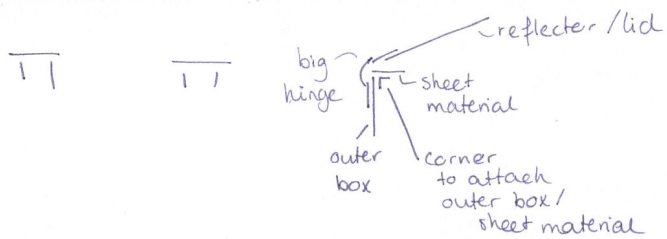 reflecter / lid
big
hinge
sheet
material
outer
box
corner
to attach
outer box /
sheet material